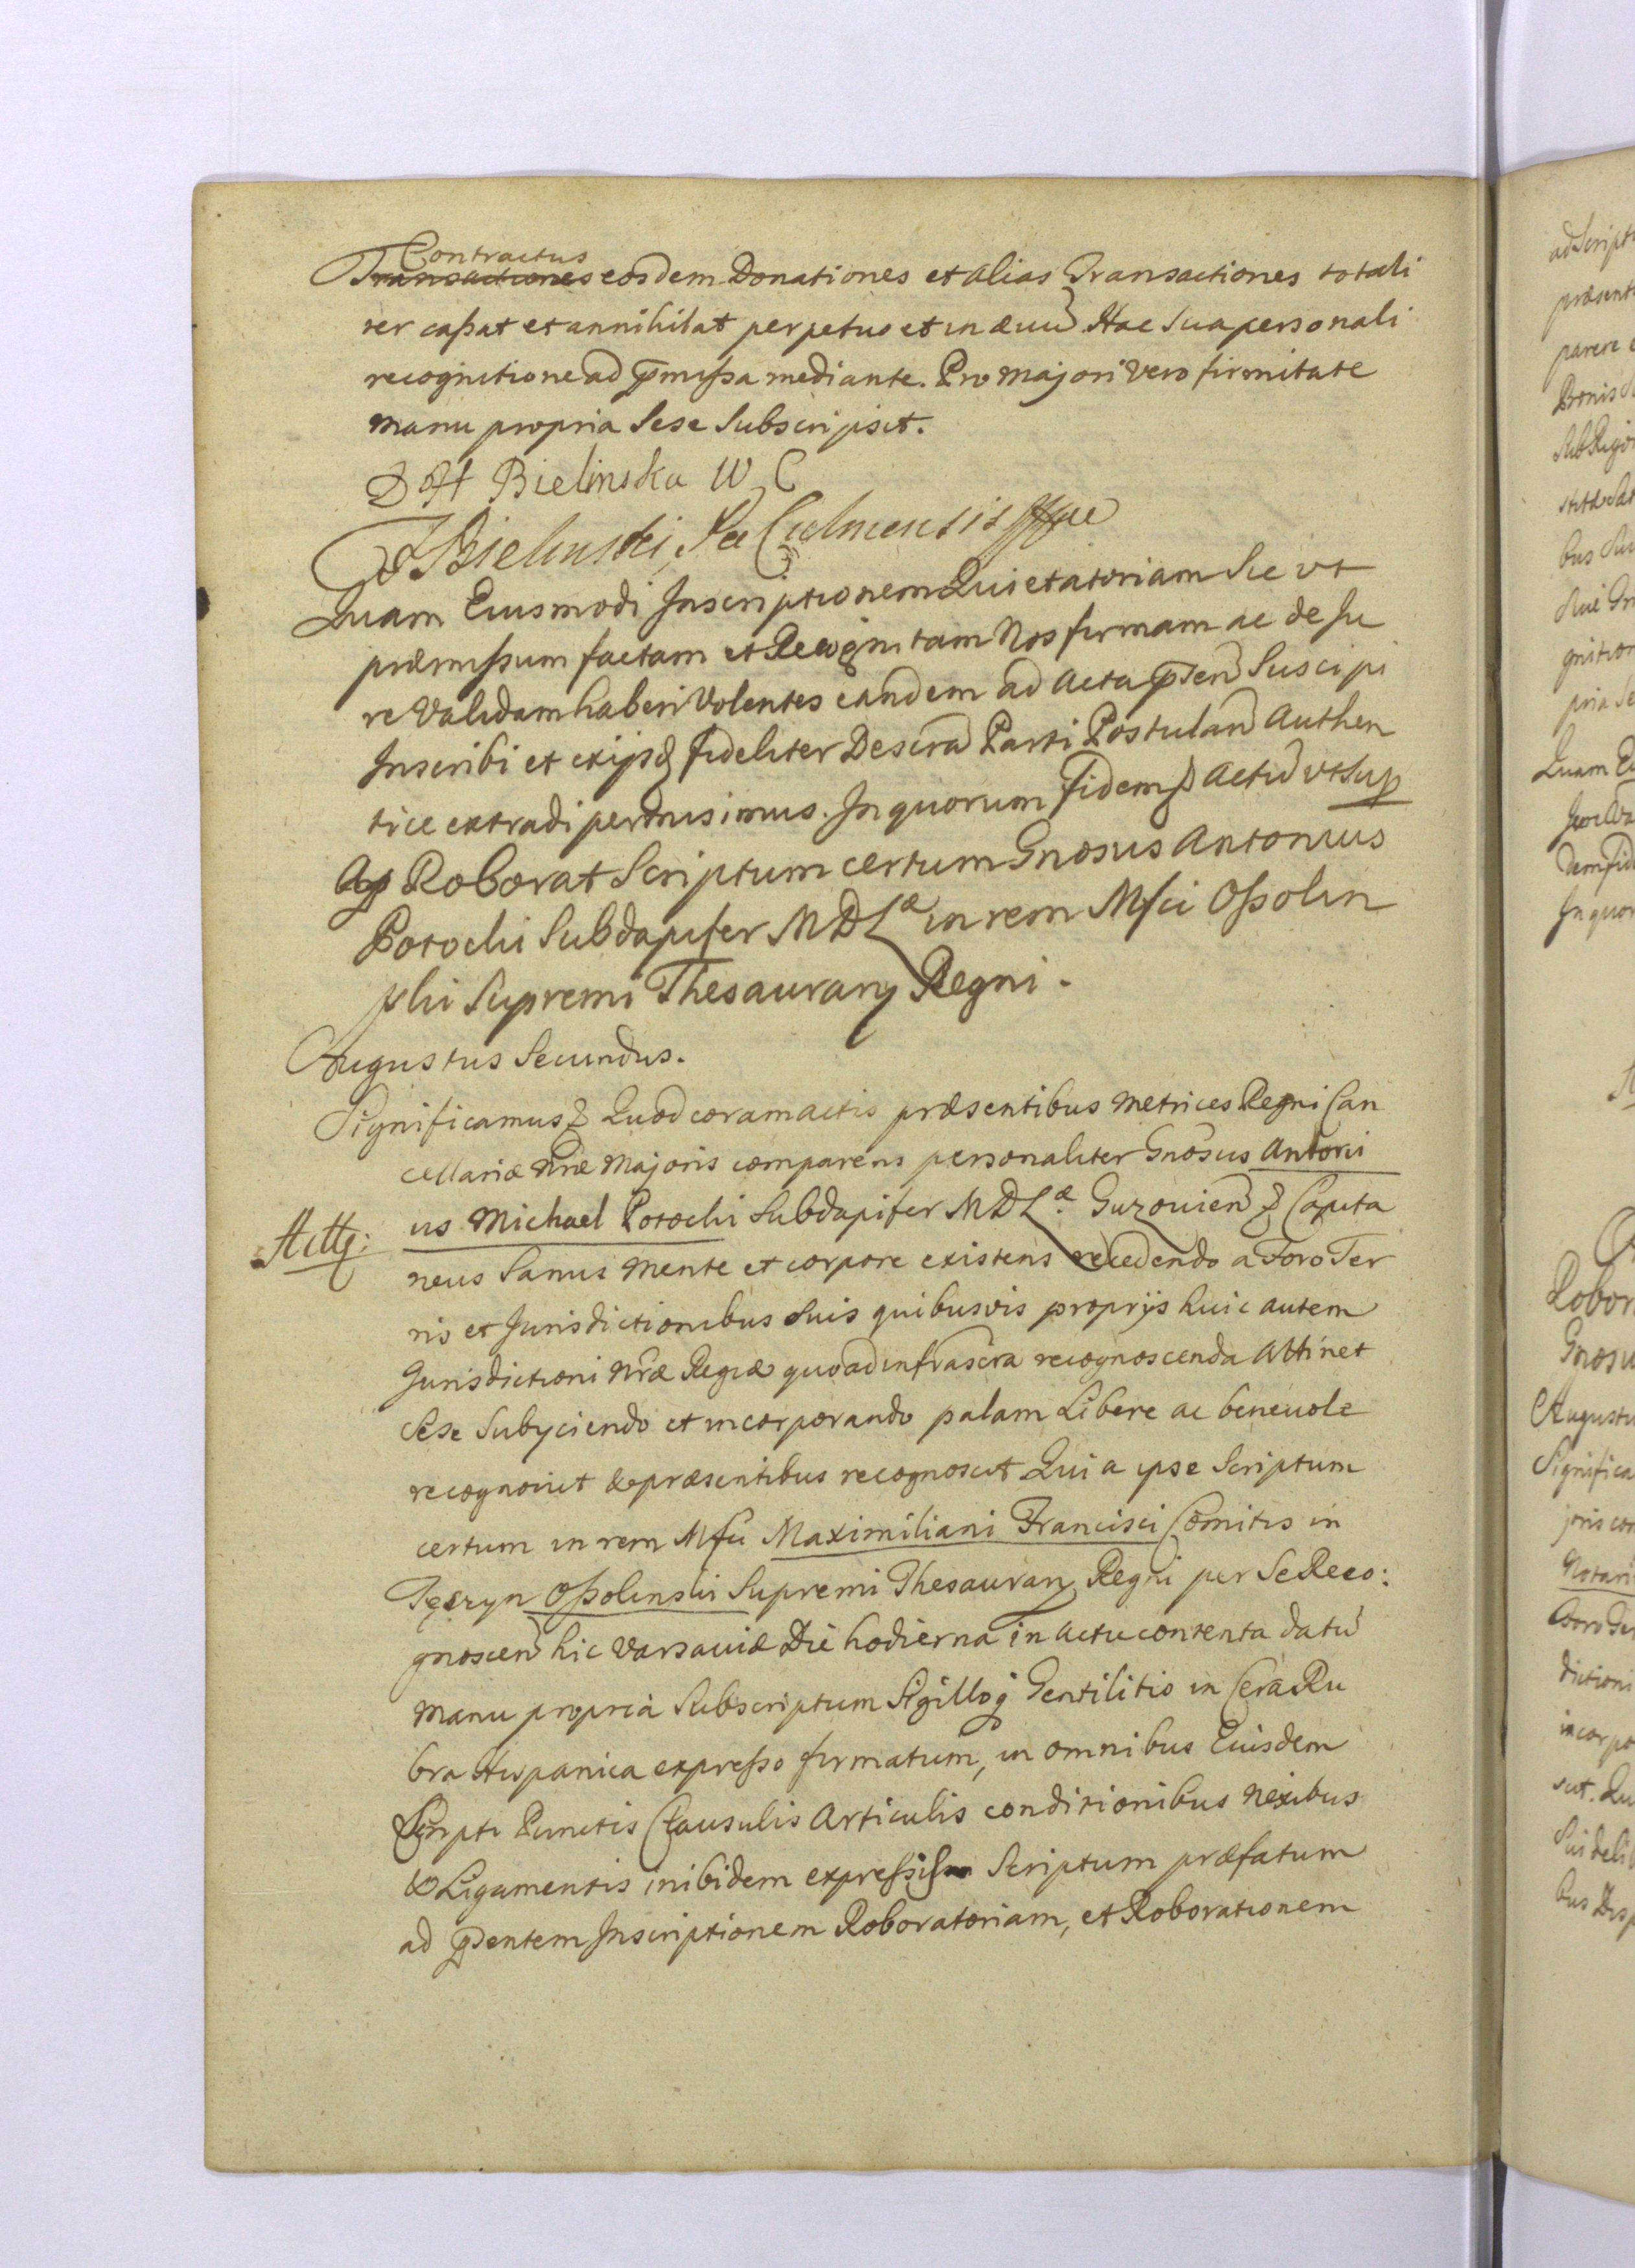 Contractus
Transactiones eosdem Donationes et alias Transactiones totali
ter caßat et annihilat perpetuo et in æuu Hac Sua personali
recognitione ad pmißa mediante. Pro majori vero firmitate
manu propria Sese Subscripsit.
D H Bielinska W C
Bielinski, Culmensis
Quam Eiusmodi Inscriptionem Quietatoriam Sic vt
præmißum factam et Recognitam Nos firmam ac de Ju
re Validam haberi Volentes eandem ad Acta pñten Suscipi
Inscribi et exijsq fideliter Descra Parti Postulan Authen
tice extradi permisimus. In quorum fidem Actu vt Sup
Roborat Scriptum certum Gnosus Antonius
Potocki Subdapifer MDLæ in rem Mfci Oßolin
ski Supremi Thesaurarij Regni.
Augustus Secundus.
Significamus Quod coram actis præsentibus Metrices Regni Can
cellariæ Nræ Majoris comparens personaliter Gnosus Antoni
us Michael Potocki Subdapifer MDLæ. Guzouien Capita
neus Sanus mente et corpore existens recedendo a Foro Ter
ris et Jurisdictionibus Suis quibusvis proprijs huic autem
Jurisdictioni Nræ Regiæ quoad infrascra recognoscenda Attinet
Sese Subyciendo et incorporando palam Libere ac beneuole
recognouit & præsentibus recognoscit Quia ipse Scriptum
certum in rem Mfci Maximiliani Francisci Comitis in
Tęczyn Oßolinski Supremi Thesaurarij Regni per Se Reco:
gnoscen hic Varsauiæ Die hodierna in Actu contenta datu
manu propria Subscriptum Sigilloq Gentilitio in Cera Ru
bra Hispanica expreßo firmatum, in omnibus Eiusdem
Scripti Punctis Clausulis Articulis conditionibus Nexibus
& Ligamentis inibidem expreßis Scriptum præfatum
ad pñtentem Inscriptionem Roboratoriam, et Roborationem